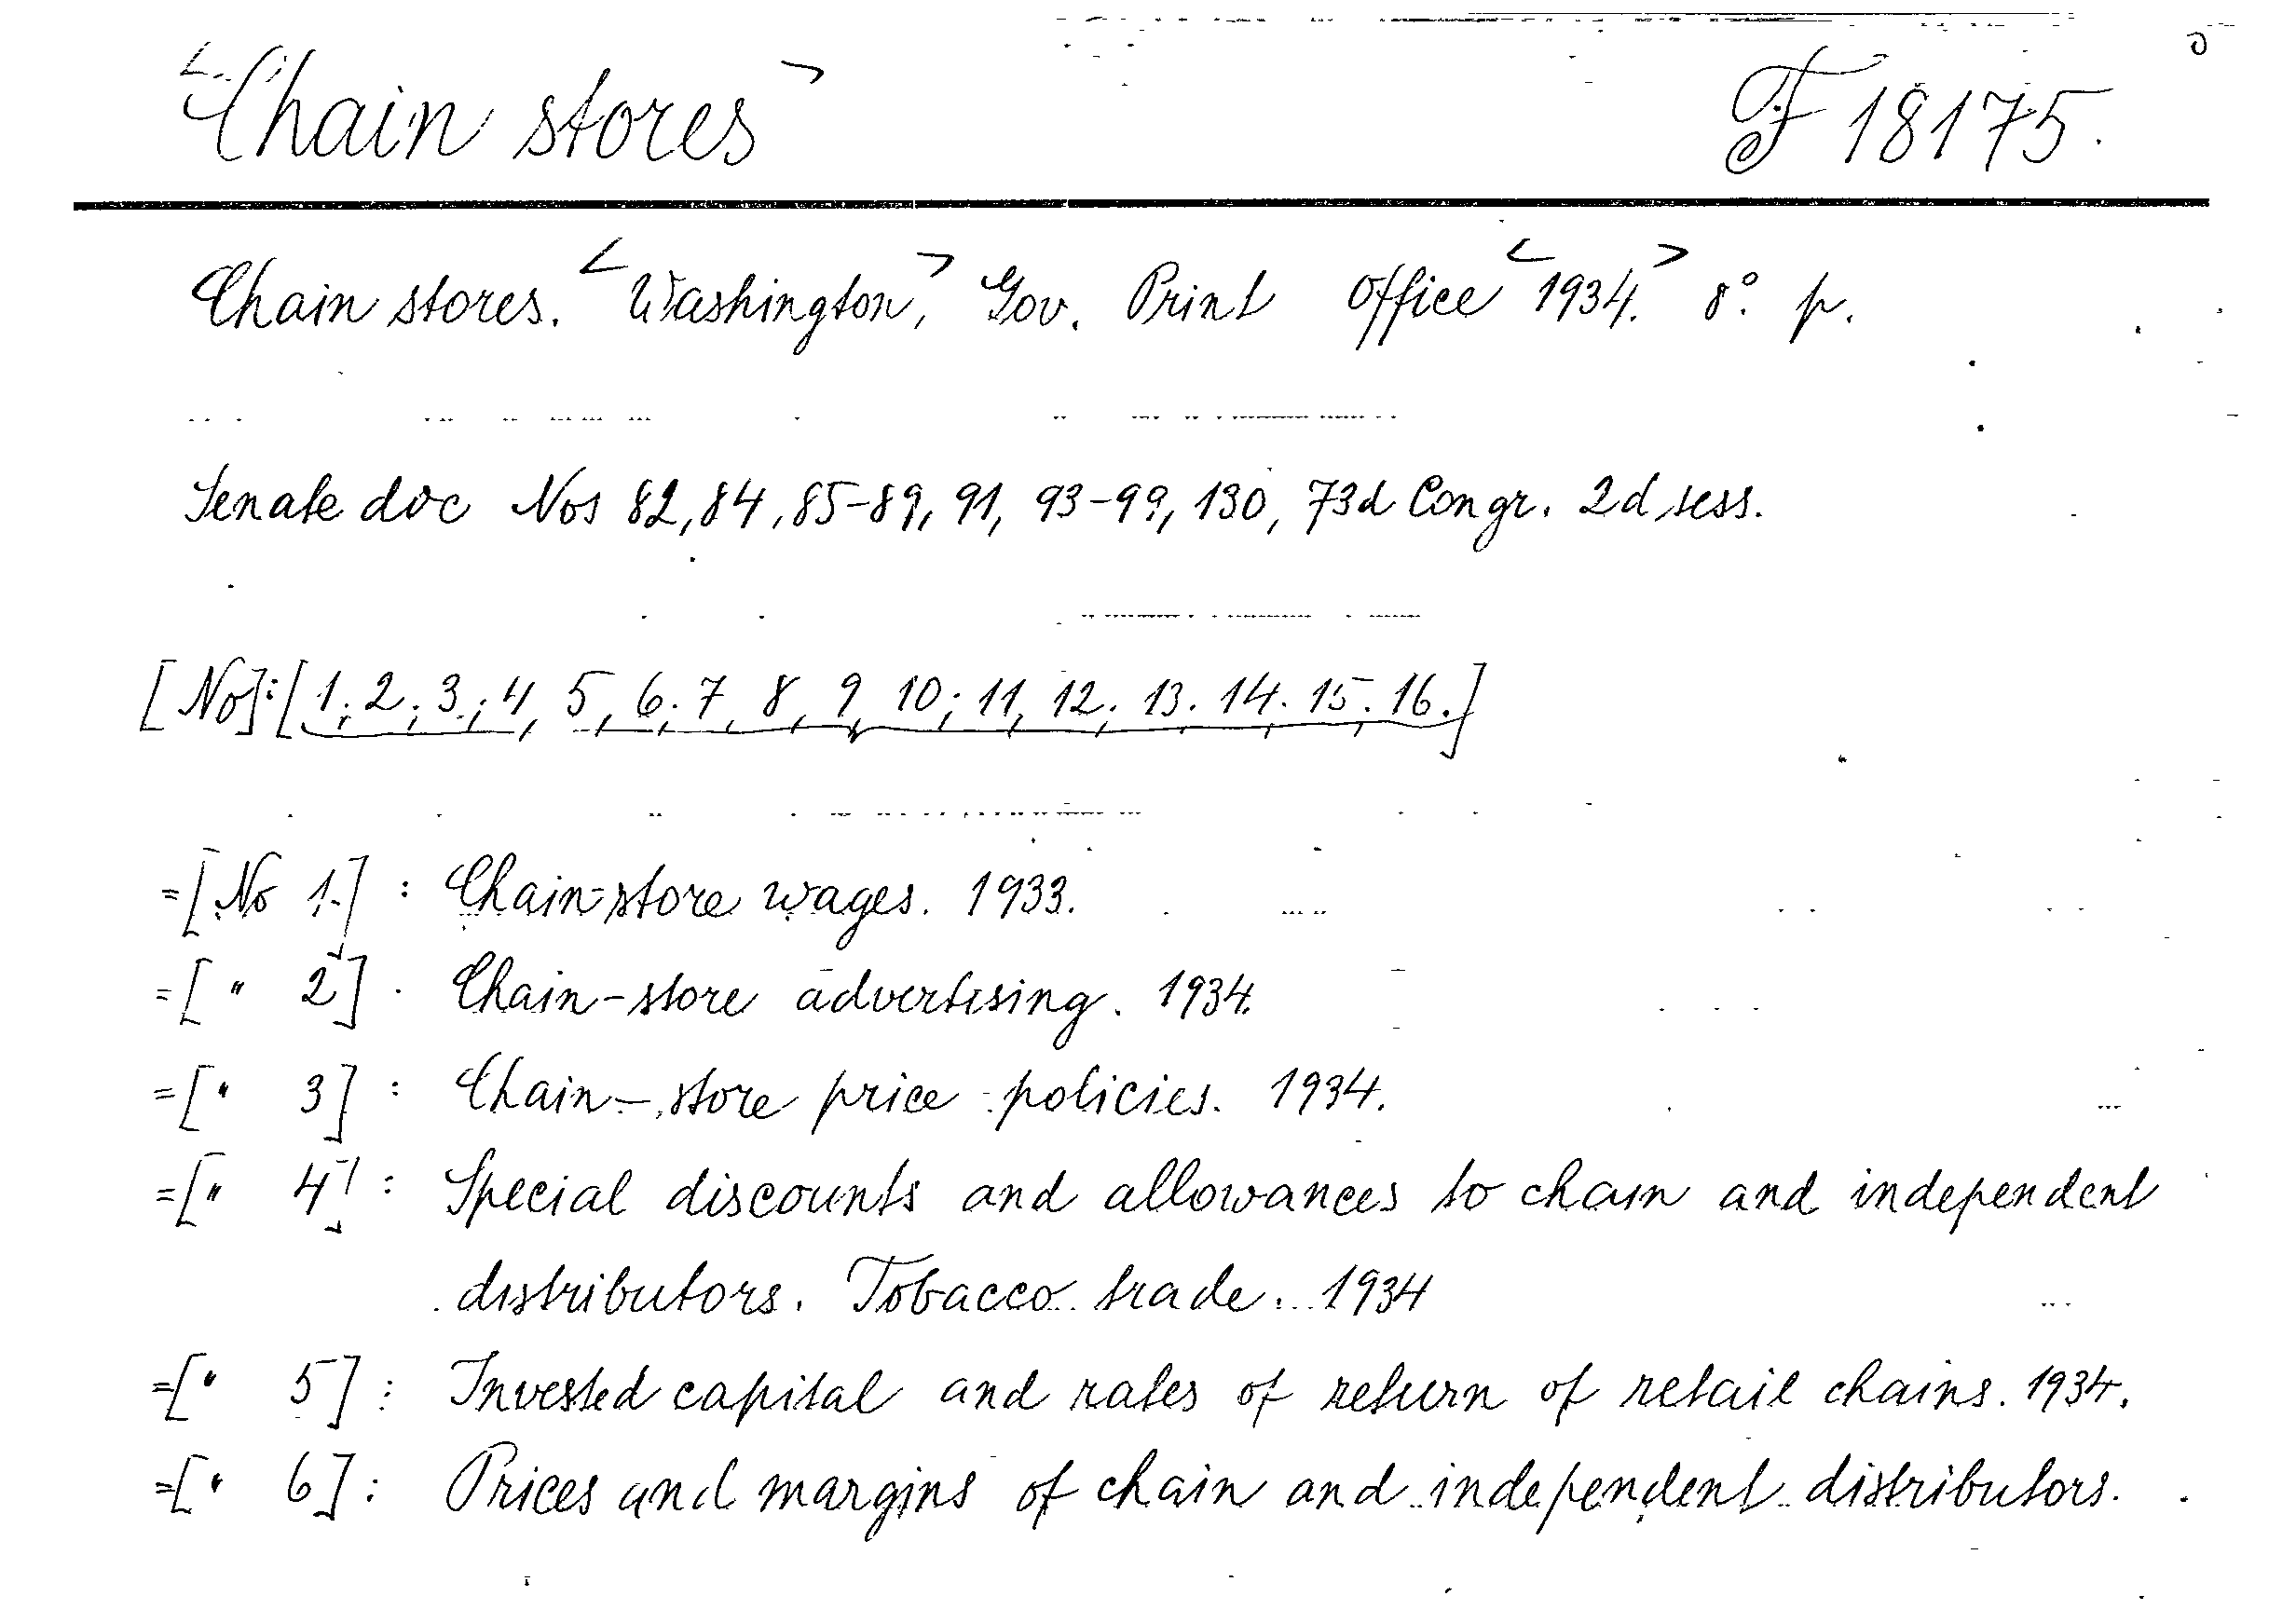 <Chain stores> F 18175.
Chain stores. <Washington,> Gov. Print Office <1934.> 8° p.
Senate doc Nos 82, 84, 85-89, 91, 93-99, 130, 73d Congr. 2d sess.
[No]:[1; 2; 3; 4, 5, 6; 7, 8, 9, 10; 11, 12; 13. 14. 15. 16.]
=[No 1.] : Chain-store wages. 1933.
=[" 2] . Chain-store advertising. 1934.
=[" 3] : Chain-store price policies. 1934.
=[" 4] : Special discounts and allowances to chain and independent
distributors. Tobacco trade. 1934
=[" 5] : Invested capital and rates of return of retail chains. 1934.
=[" 6] : Prices and margins of chain and independent distributors.